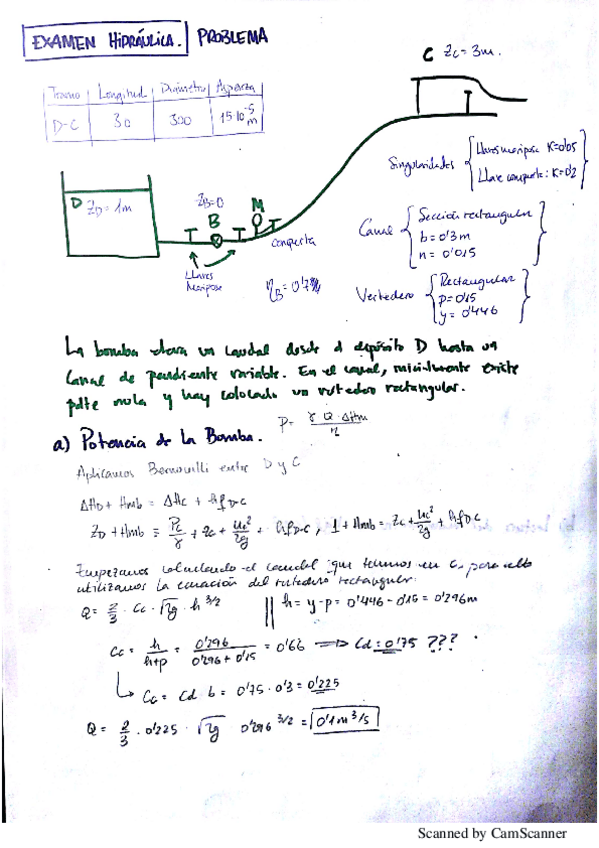 EXAMEN HIDRÁULICA. PROBLEMA
C Zc = 3m.
Tramo | Longitud | Diámetro | Aspereza
D-C | 30 | 300 | 15·10⁻⁵ m
Singularidades { Llaves mariposa K=0'05
Llave compuerta: K=0'2 }
D Z_D = 1m
Z_B=0
B
M
compuerta
Llaves
Mariposa
η_B = 0'7
Canal { Sección rectangular
b = 0'3 m
n = 0'015 }
Vertedero { Rectangular
p=0'15
y = 0'446 }
La bomba eleva un caudal desde el depósito D hasta un
Canal de pendiente variable. En el canal, inicialmente existe
pdte nula y hay colocado un vertedero rectangular.
a) Potencia de la Bomba. P = γ·Q·ΔHm / η
Aplicamos Bernouilli entre D y C
ΔH_D + Hmb = ΔHc + hf_D-C
Z_D + Hmb = Pc/γ + Zc + uc²/2g + hf_D-C, 1 + Hmb = Zc + uc²/2g + hf_D-C
Empezamos calculando el caudal que tenemos en C, para ello
utilizamos la ecuación del vertedero rectangular:
Q = 2/3 · Cc · √2g · h^3/2 || h = y-p = 0'446 - 0'15 = 0'296m
Cc = h/h+p = 0'296/0'296+0'15 = 0'66 ⟹ Cd = 0'75 ???
↳ Cc = Cd · b = 0'75 · 0'3 = 0'225
Q = 2/3 · 0'225 · √2g 0'296^3/2 = 0'1 m³/s
Scanned by CamScanner